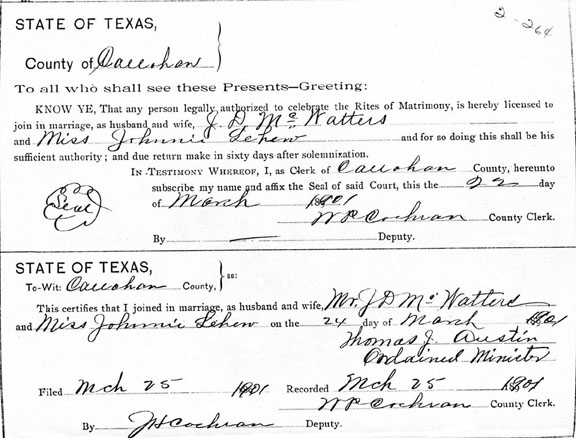 2-264
STATE OF TEXAS,
County of Callahan
To all who shall see these Presents—Greeting:
KNOW YE, That any person legally authorized to celebrate the Rites of Matrimony, is hereby licensed to
join in marriage, as husband and wife, J. D. McWatters
and Miss Johnnie Lehew and for so doing this shall be his
sufficient authority; and due return make in sixty days after solemnization.
IN TESTIMONY WHEREOF, I, as Clerk of Callahan County, hereunto
subscribe my name and affix the Seal of said Court, this the 22 day
Seal
of March 1901
W P Cochran County Clerk.
By Deputy.
STATE OF TEXAS,
To-Wit: Callahan County. ss:
This certifies that I joined in marriage, as husband and wife, Mr. J D McWatters
and Miss Johnnie Lehew on the 24 day of March 1901
Thomas J. Austin
Ordained Minister
Filed Mch 25 1901 Recorded Mch 25 1901
W P Cochran County Clerk.
By J H Cochran Deputy.